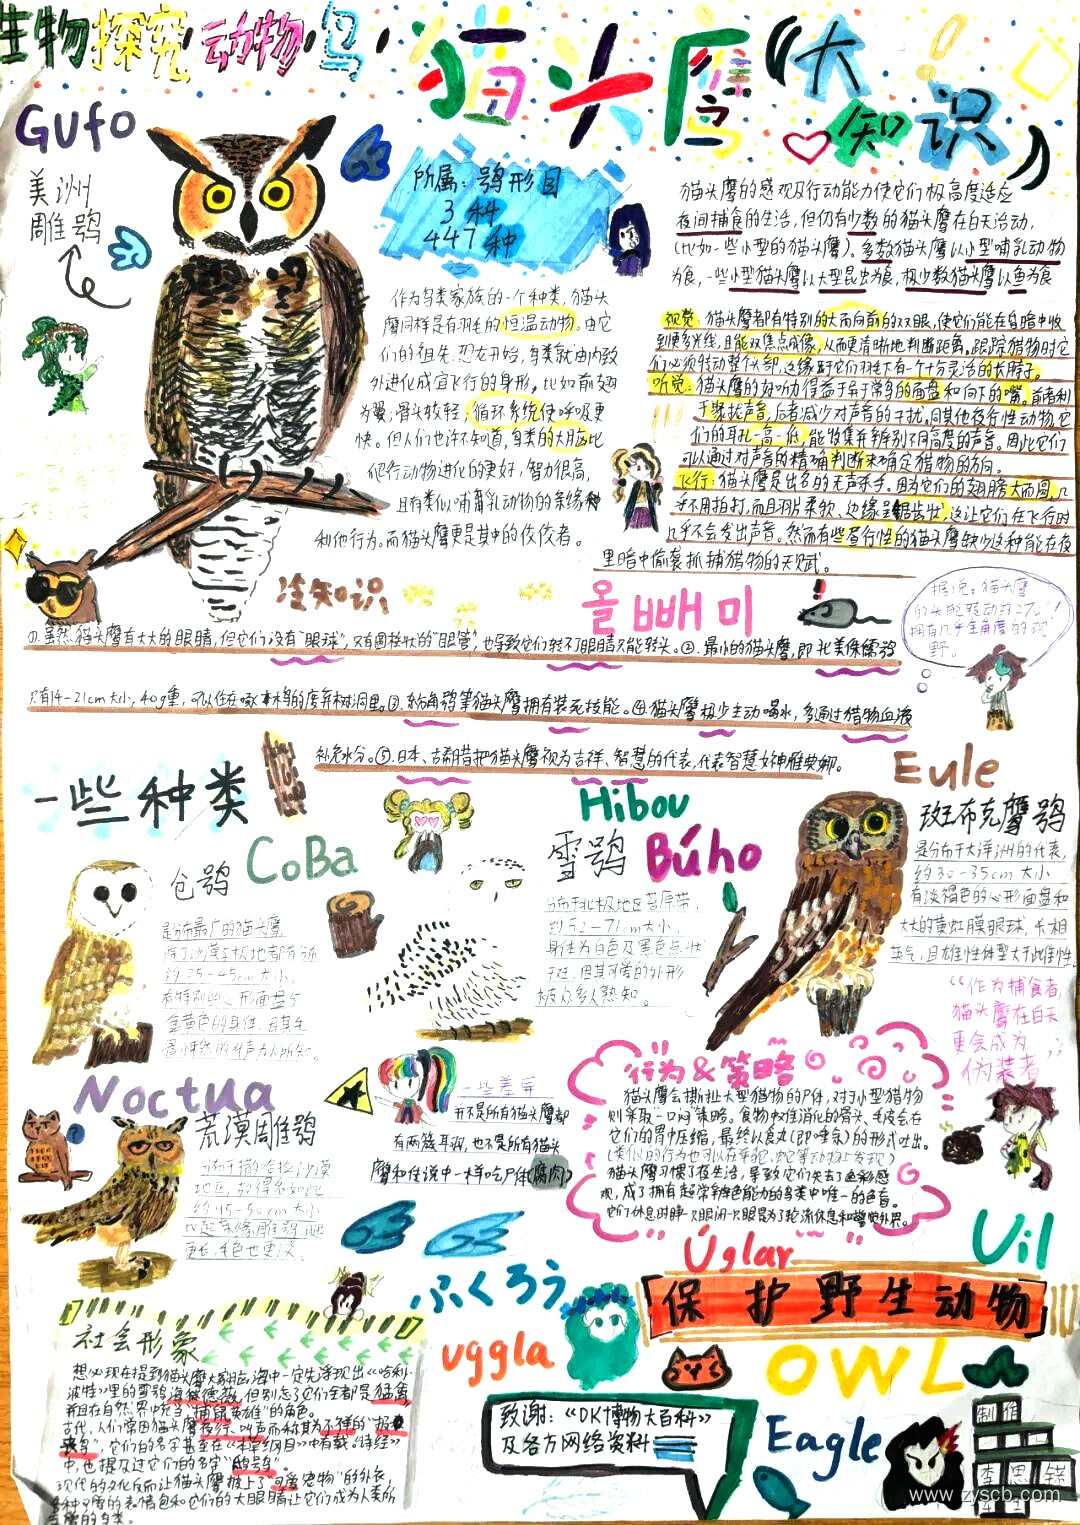 生物探究·动物·鸟·
猫头鹰（大
知识！）
Gufo
美洲
雕鸮
所属：鸮形目
3科
447种
猫头鹰的感观及行动能力使它们极高度适应
夜间捕食的生活，但仍有少数的猫头鹰在白天活动，
（比如一些小型的猫头鹰）。多数猫头鹰以小型哺乳动物
为食，一些小型猫头鹰以大型昆虫为食，极少数猫头鹰以鱼为食
作为鸟类家族的一个种类，猫头
鹰同样是有羽毛的恒温动物。由它
们的祖先恐龙开始，鸟类就由内致
外进化成宜飞行的身形，比如前翅
为翼，骨头较轻，循环系统使呼吸更
快。但人们也许不知道，鸟类的大脑比
爬行动物进化的更好，智力很高，
且有类似哺乳动物的亲缘
利他行为。而猫头鹰更是其中的佼佼者。
视觉：猫头鹰都有特别的大而向前的双眼，使它们能在昏暗中收
到更多光线，且能双焦点成像，从而更清晰地判断距离。跟踪猎物时它
们必须转动整个头部，这缘于它们羽毛下有一个十分灵活的长脖子。
听觉：猫头鹰的好听力得益于异于常鸟的面盘和向下的嘴。前者利
于聚拢声音，后者减少对声音的干扰。同其他夜行性动物，它
们的耳孔一高一低，能收集并辨别不同高度的声音。因此它们
可以通过对声音的精确判断来确定猎物的方向。
飞行：猫头鹰是出名的无声杀手。因为它们的翅膀大而圆，几
乎不用拍打，而且羽片柔软、边缘呈锯齿状，这让它们在飞行时
几乎不会发出声音。然而有些昼行性的猫头鹰缺少这种能在夜
里暗中偷袭抓捕猎物的天赋。
冷知识
올빼미
据说：猫头鹰
的头能转动约270°！
拥有几乎全角度的视
野。
①.虽然猫头鹰有大大的眼睛，但它们没有“眼球”，只有圆柱状的“眼管”，也导致它们转不了眼睛只能转头。②.最小的猫头鹰，即北美侏儒鸮
只有14-21cm大小，40g重，可以住在啄木鸟的废弃树洞里。③.东方角鸮等猫头鹰拥有装死技能。④猫头鹰极少主动喝水，多通过猎物血液
补充水分。⑤.日本、古希腊把猫头鹰视为吉祥、智慧的代表，代表智慧女神雅典娜。
一些种类
Eule
Hibou
Búho
CoBa
仓鸮
是分布最广的猫头鹰，
除了沙漠与极地都有分布
约25-45cm大小，
有特别的心形面盘与
金黄色的身体，
雪鸮
分布于北极地区苔原带，
约52-71cm大小，
身体为白色及黑色点状
斑，因其可爱的外形
被众多人熟知。
斑布克鹰鸮
是分布于大洋洲的代表，
约30-35cm大小
有淡褐色的心形面盘和
大大的黄虹膜眼球，长相
生气，且雄性体型大于雌性
“作为捕食者，
猫头鹰在白天
更会成为
伪装者”
Noctua
荒漠雕鸮
分布于撒哈拉沙漠
地区，
约45-50cm大小
一些差异
并不是所有猫头鹰都
有两簇耳羽，也不是所有猫头
鹰和传说中一样吃尸体（腐肉）
行为&策略
猫头鹰会撕扯大型猎物的尸体，对于小型猎物
则采取“一口闷”策略。食物中难消化的骨头、毛皮会在
它们的胃中压缩，最终以食丸（即唾余）的形式吐出。
（类似的行为也可以在苍鹭、蛇等动物上发现）
猫头鹰习惯了夜生活，导致它们失去了色彩感
观，成了拥有超常辨色能力的鸟类中唯一的色盲。
它们休息时睁一只眼闭一只眼是为了轮流休息和警觉外界。
Úglar
Uil
ふくろう
uggla
保护野生动物
OWL
Eagle
社会形象
想必现在提到猫头鹰大家脑海中一定先浮现出《哈利·
波特》里的雪鸮海德薇，但别忘了它们全都是猛禽
并且在自然界中充当“捕鼠英雄”的角色。
古代，人们常因猫头鹰夜行、叫声而称其为不祥的“报
丧鸟”，它们的名字甚至在《本草纲目》中有载。《诗经》
中，也提及过它们的名字“鸱鸮”。
现代的文化反而让猫头鹰披上了“可爱宠物”的外衣，
各种可爱的表情包和它们的大眼睛让它们成为人类所
喜爱的鸟类。
致谢：《DK博物大百科》
及各方网络资料
制作
李思锘
www.zyscb.com